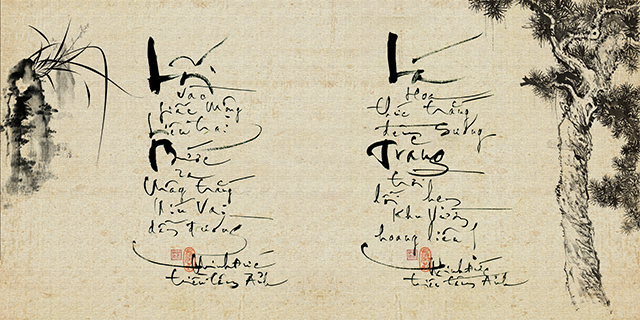 Lối
vào
giấc mộng
liêu trai
Bước
ra
trăng
vai
đẫm sương
Minh Đức
triều tâm Ảnh
Lá
Hoa
thức trắng
đêm sương
Trăng
trôi
lối hẹn
khu vườn
hoang liêu!
Minh Đức
triều tâm Ảnh